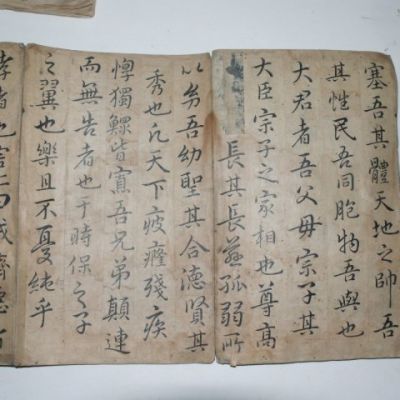 塞吾其體天地之帥吾
其性民吾同胞物吾與也
大君者吾父母宗子其
大臣宗子之家相也尊高
長其長慈孤弱所
以幼吾幼聖其合德賢其
秀也凡天下疲癃殘疾
惸獨鰥皆寡吾兄弟顛連
而無告者也于時保之子
之翼也樂且不憂純乎
孝者也